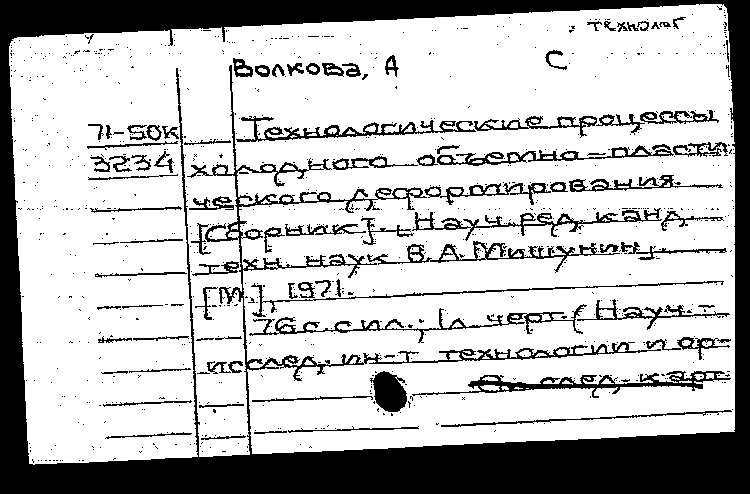 технолог
Волкова, А С
71-50к Технологические процессы
3234 холодного объемно-пласти
ческого деформирования.
[Сборник]. [Науч. ред. канд.
техн. наук В. А. Мишунин].
[М.], 1971.
76 с. с ил.; 1 л. черт. (Науч.-
исслед. ин-т технологии и ор-
См. след. карт